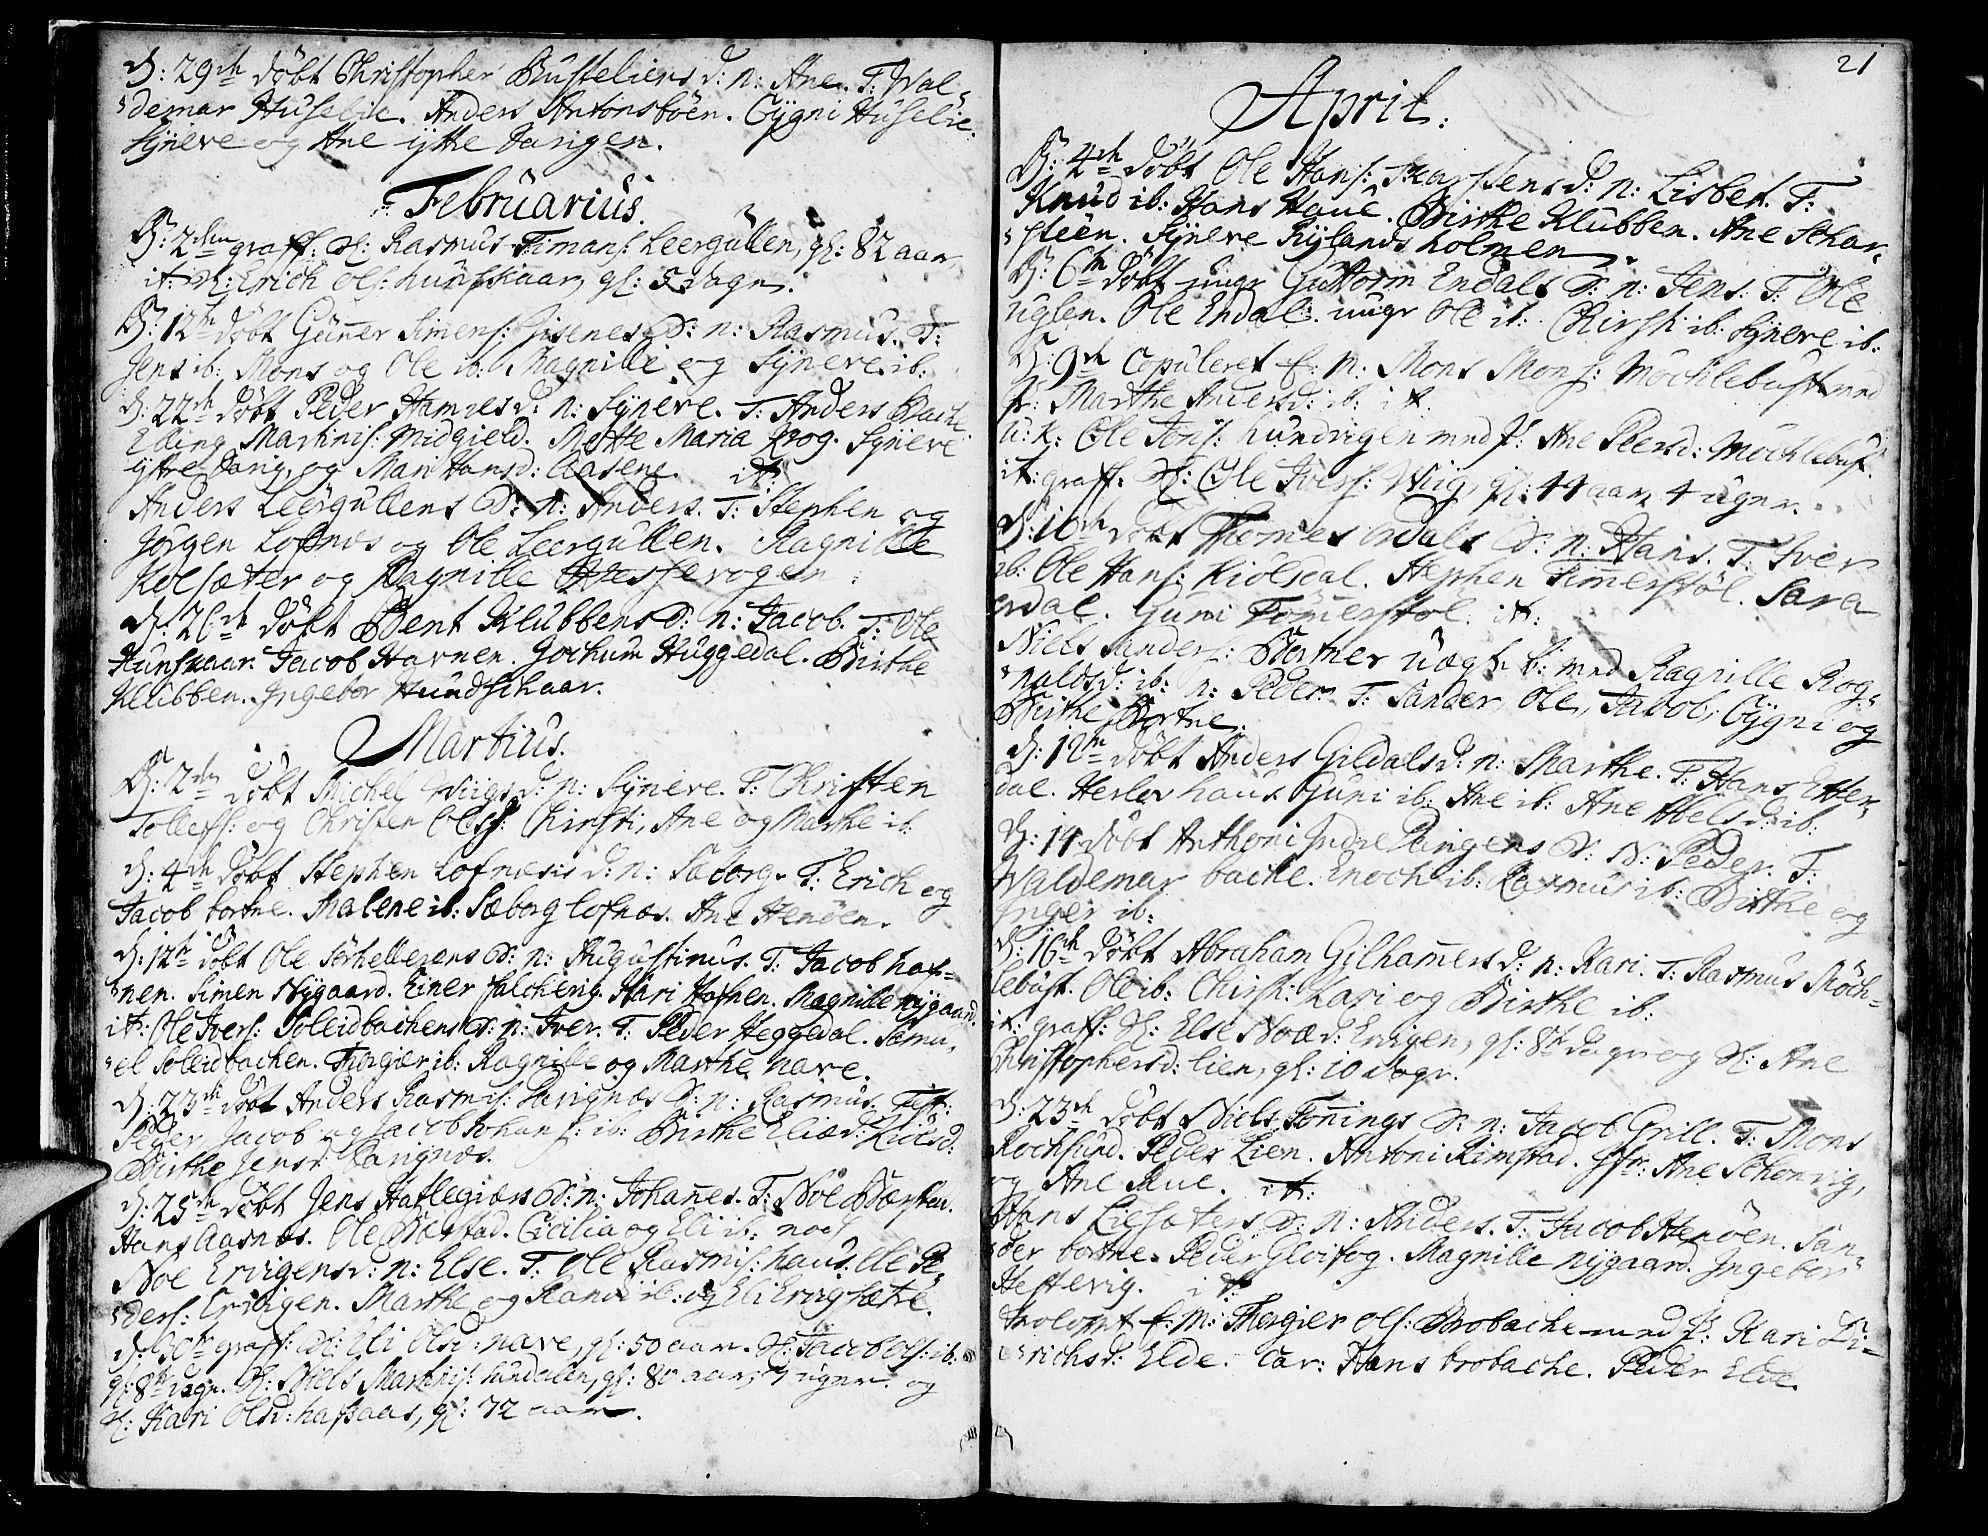 D: 29de döbt Christopher Busteliens d: n: Ane. T: Wal-
demar Huselie. Anders Antonsböen. Gygni Huselie.
Synere og Ane ytte Darigen.
Februarius.
D: 2den graff: Sl: Rasmus Timans: Leergullen, gl: 82 aar,
it: Sl: Erich Ols: hunskaar, gl: 5 dage.
D: 12te döbt Guner Simens: S: n: Rasmus. T:
Jens ib: Mons og Ole ib: Magnille og Synere ib:
D: 22de döbt Peder d: n: Synere. T: Anders Bache
Elling Martinis: Midgield. Mette Maria Krog. Synere
ytre Darig, og Mari Hansd: Aasene. it:
Anders Leergullens S: n: Anders. T: Stephen og
Jörgen Lofnæs og Ole Leergullen. Ragnille
Kolsæter og Ragnille
D: 26de döbt Bent Klubbens S: n: Jacob. T: Ole
Hunskaar. Jacob Havnen. Gochum Huggedal. Birthe
Klubben. Ingebor Hundschaar.
Martius.
D: 2den döbt Michel Wiigs d: n: Synere. T: Christen
Tollefs: og Christen Olss: Chirsti, Ane og Marthe ib:
D: 4de döbt Stephen Lofnæsis d: n: Sæborg. T: Erich og
Jacob bortne. Malene ib: Sæborg Lofnæs. Ane Henöen.
D: 12te döbt Ole Sörhellerens S: n: Augustinus. T: Jacob haf-
nen. Simen Nygaard. Einer falcheng. Kari Hafnen. Magnille nygaard.
it: Ole Ivers: Soleidbachens S: n: Iver. T: Peder Heggedal. Samu-
el Soleidbachen. Torgier ib: Ragnille og Marthe nave.
D: 23de döbt Anders Rasmis: Parignæs S: n: Rasmus. Test:
Peder, Jacob og Jacob Johans: ib: Birthe Eliæd:
Birthe Jensd: Parignæs.
D: 25de döbt Jens Haflegiærs S: n: Johanes. T: Noe Barstad.
Hans Aarnæs. Ole Barstad. Cicilia og Eli ib: nock
Noe Ervigens d: n: Else. T: Ole Rasmis: haus. Elle Pe-
ders: Ervigen. Marthe og ib: og Eli Ervig sætre.
D: 30te graff: Sl: Eli Olsd: nave, gl: 50 aar. Sl: Jacob Ols: ib:
gl: 8te dage. Sl: Niels Martinis: hundalen, gl: 80 aar, uger. og
Sl: Kari Olsd: haßaas, gl: 72 aar.
21
April.
D: 4de döbt Ole Hans: d: n: Lisbet. T:
Knud ib: Hans Haue. Birthe Klubben. Ane Schar-
steen. Synere Rylandsholmen.
D: 6te döbt unge Guttorm Endals S: n: Jens: T: Ole
uglen. Ole Endal. unge Ole ib: Chirsti ib: Synere ib:
D: 9de Copuleret E: M: Mons Mons: Möchlebust med
P: Marthe Andersd: ib: it.
U: K: Ole Jons: hundvigen med P: Ane Peersd: Möchlebust.
it: graff: Sl: Ole Ivers: Wiig, gl: 44 aar 4 uger.
D: 10de döbt Thomes ordals S: n: Hans. T: Iver
ib: Ole Hans: Kiölsdal. Stephen Tömerstöl. Sara
ordal. Guni Tömerstöl. it:
Niels Sanders: Bortner uægt: b: med Ragnille Rog-
naldsd: ib: n: Peder. T: Sander, Ole, Jacob, Gygni og
Birthe Bortne.
D: 12te döbt Anders Gildals d: n: Marthe. T: Hans Etter-
dal. Herlev haus. Guni ib: Ane ib: Ane Abelsd: ib:
D: 14 döbt Anthoni Indre Parigens S: N: Peder. T:
Waldemar bache. Enoch ib: Rasmus ib: Birthe og
Inger ib:
D: 16de döbt Abraham Gilhamers d: n: Kari. T: Rasmus Möch-
lebust. Ole ib: Chirsti: Kari og Birthe ib:
it: graff: Sl: Else Noæd: Ervigen, gl: 8te dage og Sl: Ane
Christophersd: Lien, gl: 10 dage.
D: 23de döbt Niels Tönings S: n: Jacob Grill. T: Mons
Rochsund. Peder Lien. Antoni Rimstad. Jfr: Ane Schonvig,
og Ane Rue. it:
Hans Liesæters S: n: Anders. T: Jacob Henöen. San-
der bortne. Peder Gloifog. Magnille nygaard. Ingebor
Heftevig. it:
Trolovet E: M: Thorgier Ols: Brobache med P: Kari Di-
richsd: Elde. Cav: Hans brobache. Peder Elde.